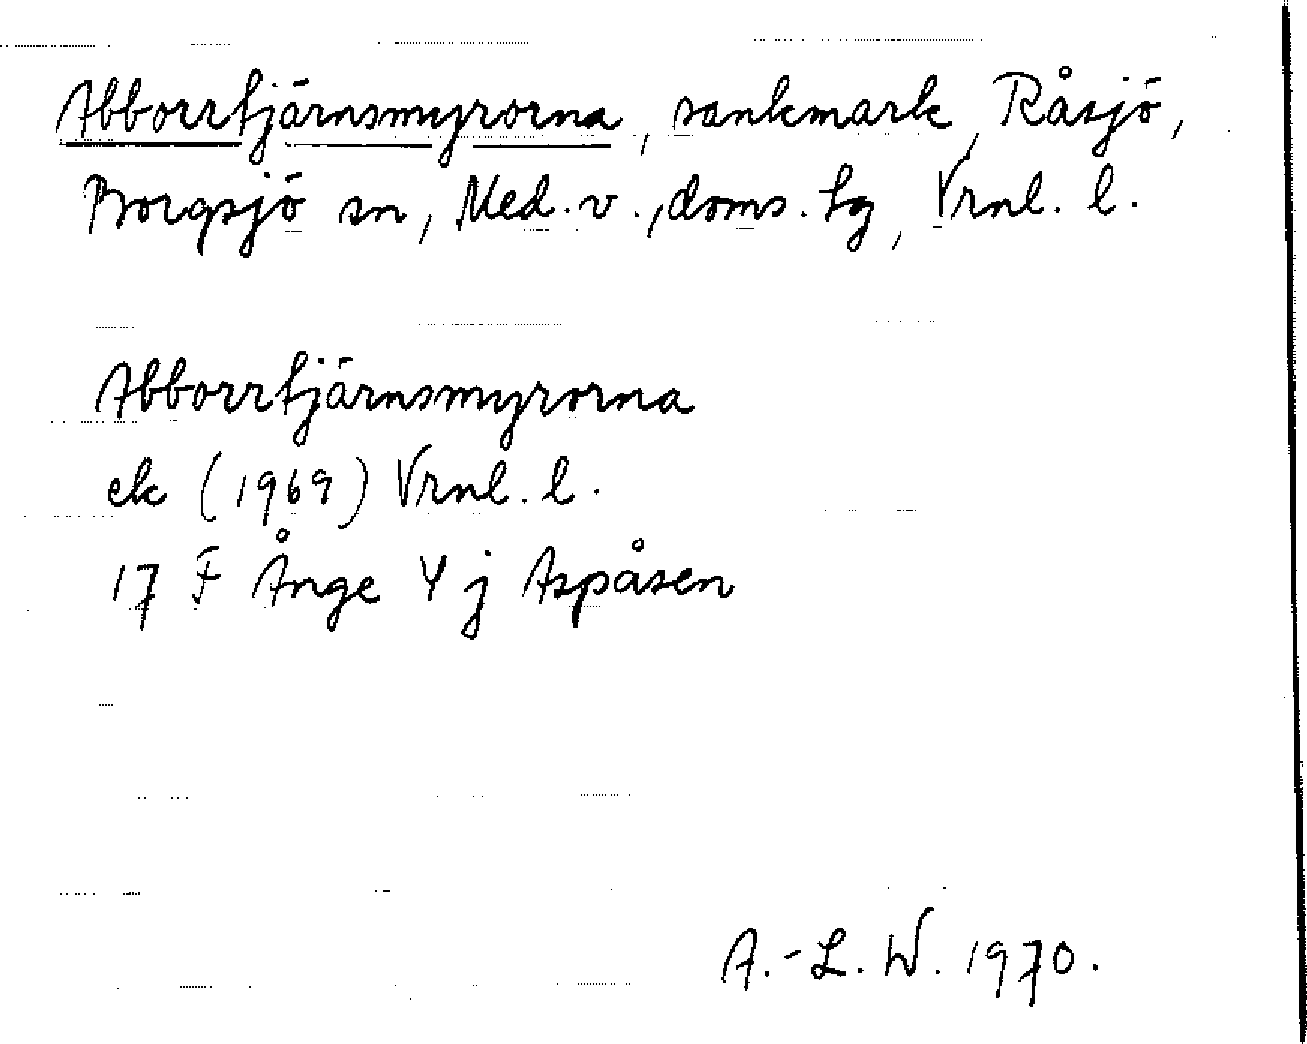 Abborrtjärnsmyrorna, sankmark, Råsjö,
Borgsjö sn, Med. v., doms. hg, Vrnl. l.
Abborrtjärnsmyrorna
ek (1969) Vrnl. l.
17 F Ånge Y j Aspåsen
A.-L. W. 1970.